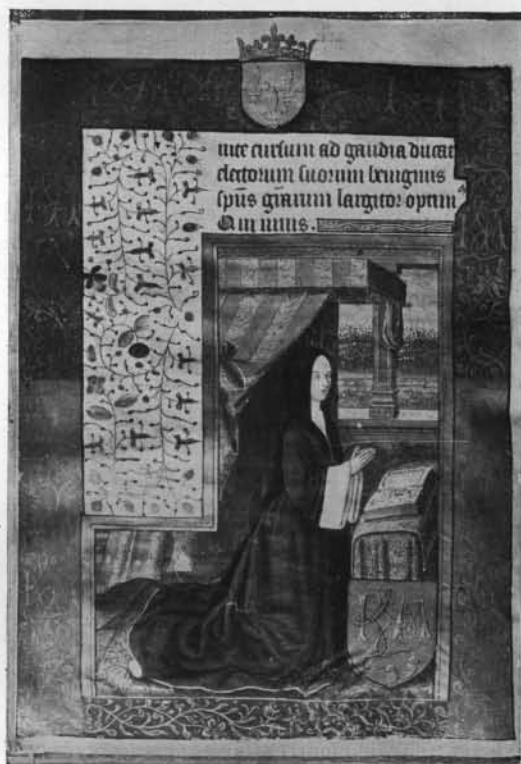 uite cursum ad gaudia ducat
electorum suorum benignus
sp̄us gr̄arum largitor optimꝰ
Qui uiuis.